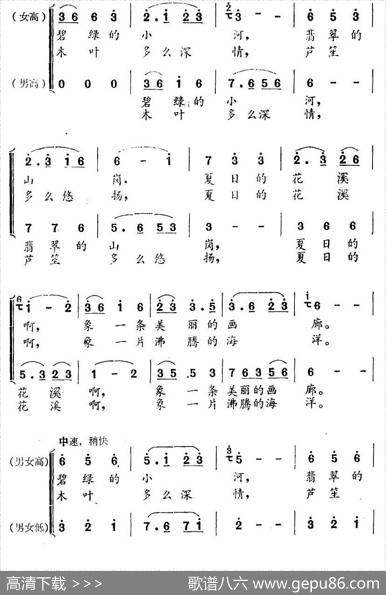 (女高) 3̇6 6 3̇ 2̇.1̇ 2̇3̇ 3̇ - - 6 5̇ 3̇
碧绿的 小 河, 翡翠的
木叶 多么深 情, 芦笙
(男高) 0 0 0 3 6 1̇ 6 7.6 5 6 6 - -
碧绿的 小 河,
木叶 多么深 情,
2̇.3̇ 1̇6 6 - 1̇ 7 3̇ 3̇ 2̇.3̇ 2̇6
山 岗. 夏日的 花 溪
多么悠 扬, 夏日的 花 溪
7 7 6 5.6 5 3 3 - - 3 6 6
翡翠的 山 岗, 夏日的
芦笙 多么悠 扬, 夏日的
1̇ - 2̇ 3̇6 1̇ 6 2̇3̇ 3̇.5̇ 3̇.6 2̇3̇ 6 - -
啊, 象 一条 美丽的 画 廊。
啊, 象 一片 沸腾的 海 洋。
5.3 2 3 1 - 2 3.5 3 3 7 6 3 5 6 5.3 5
花 溪 啊, 象 一条 美丽的画 廊。
花 溪 啊, 象 一片 沸腾的海 洋。
中速,稍快
(男女高) 6̇ 5̇ 6̇ 5̇.1̇ 2̇3̇ 5̇ - - 6̇ 5̇ 6̇
碧绿的 小 河, 翡翠的
木叶 多么深 情, 芦笙
(男女低) 3̇ 2̇ 1̇ 7.6 7 1̇ 2̇ - - 3̇ 2̇ 1̇
高清下载 >>> 歌谱八六 www.gepu86.com